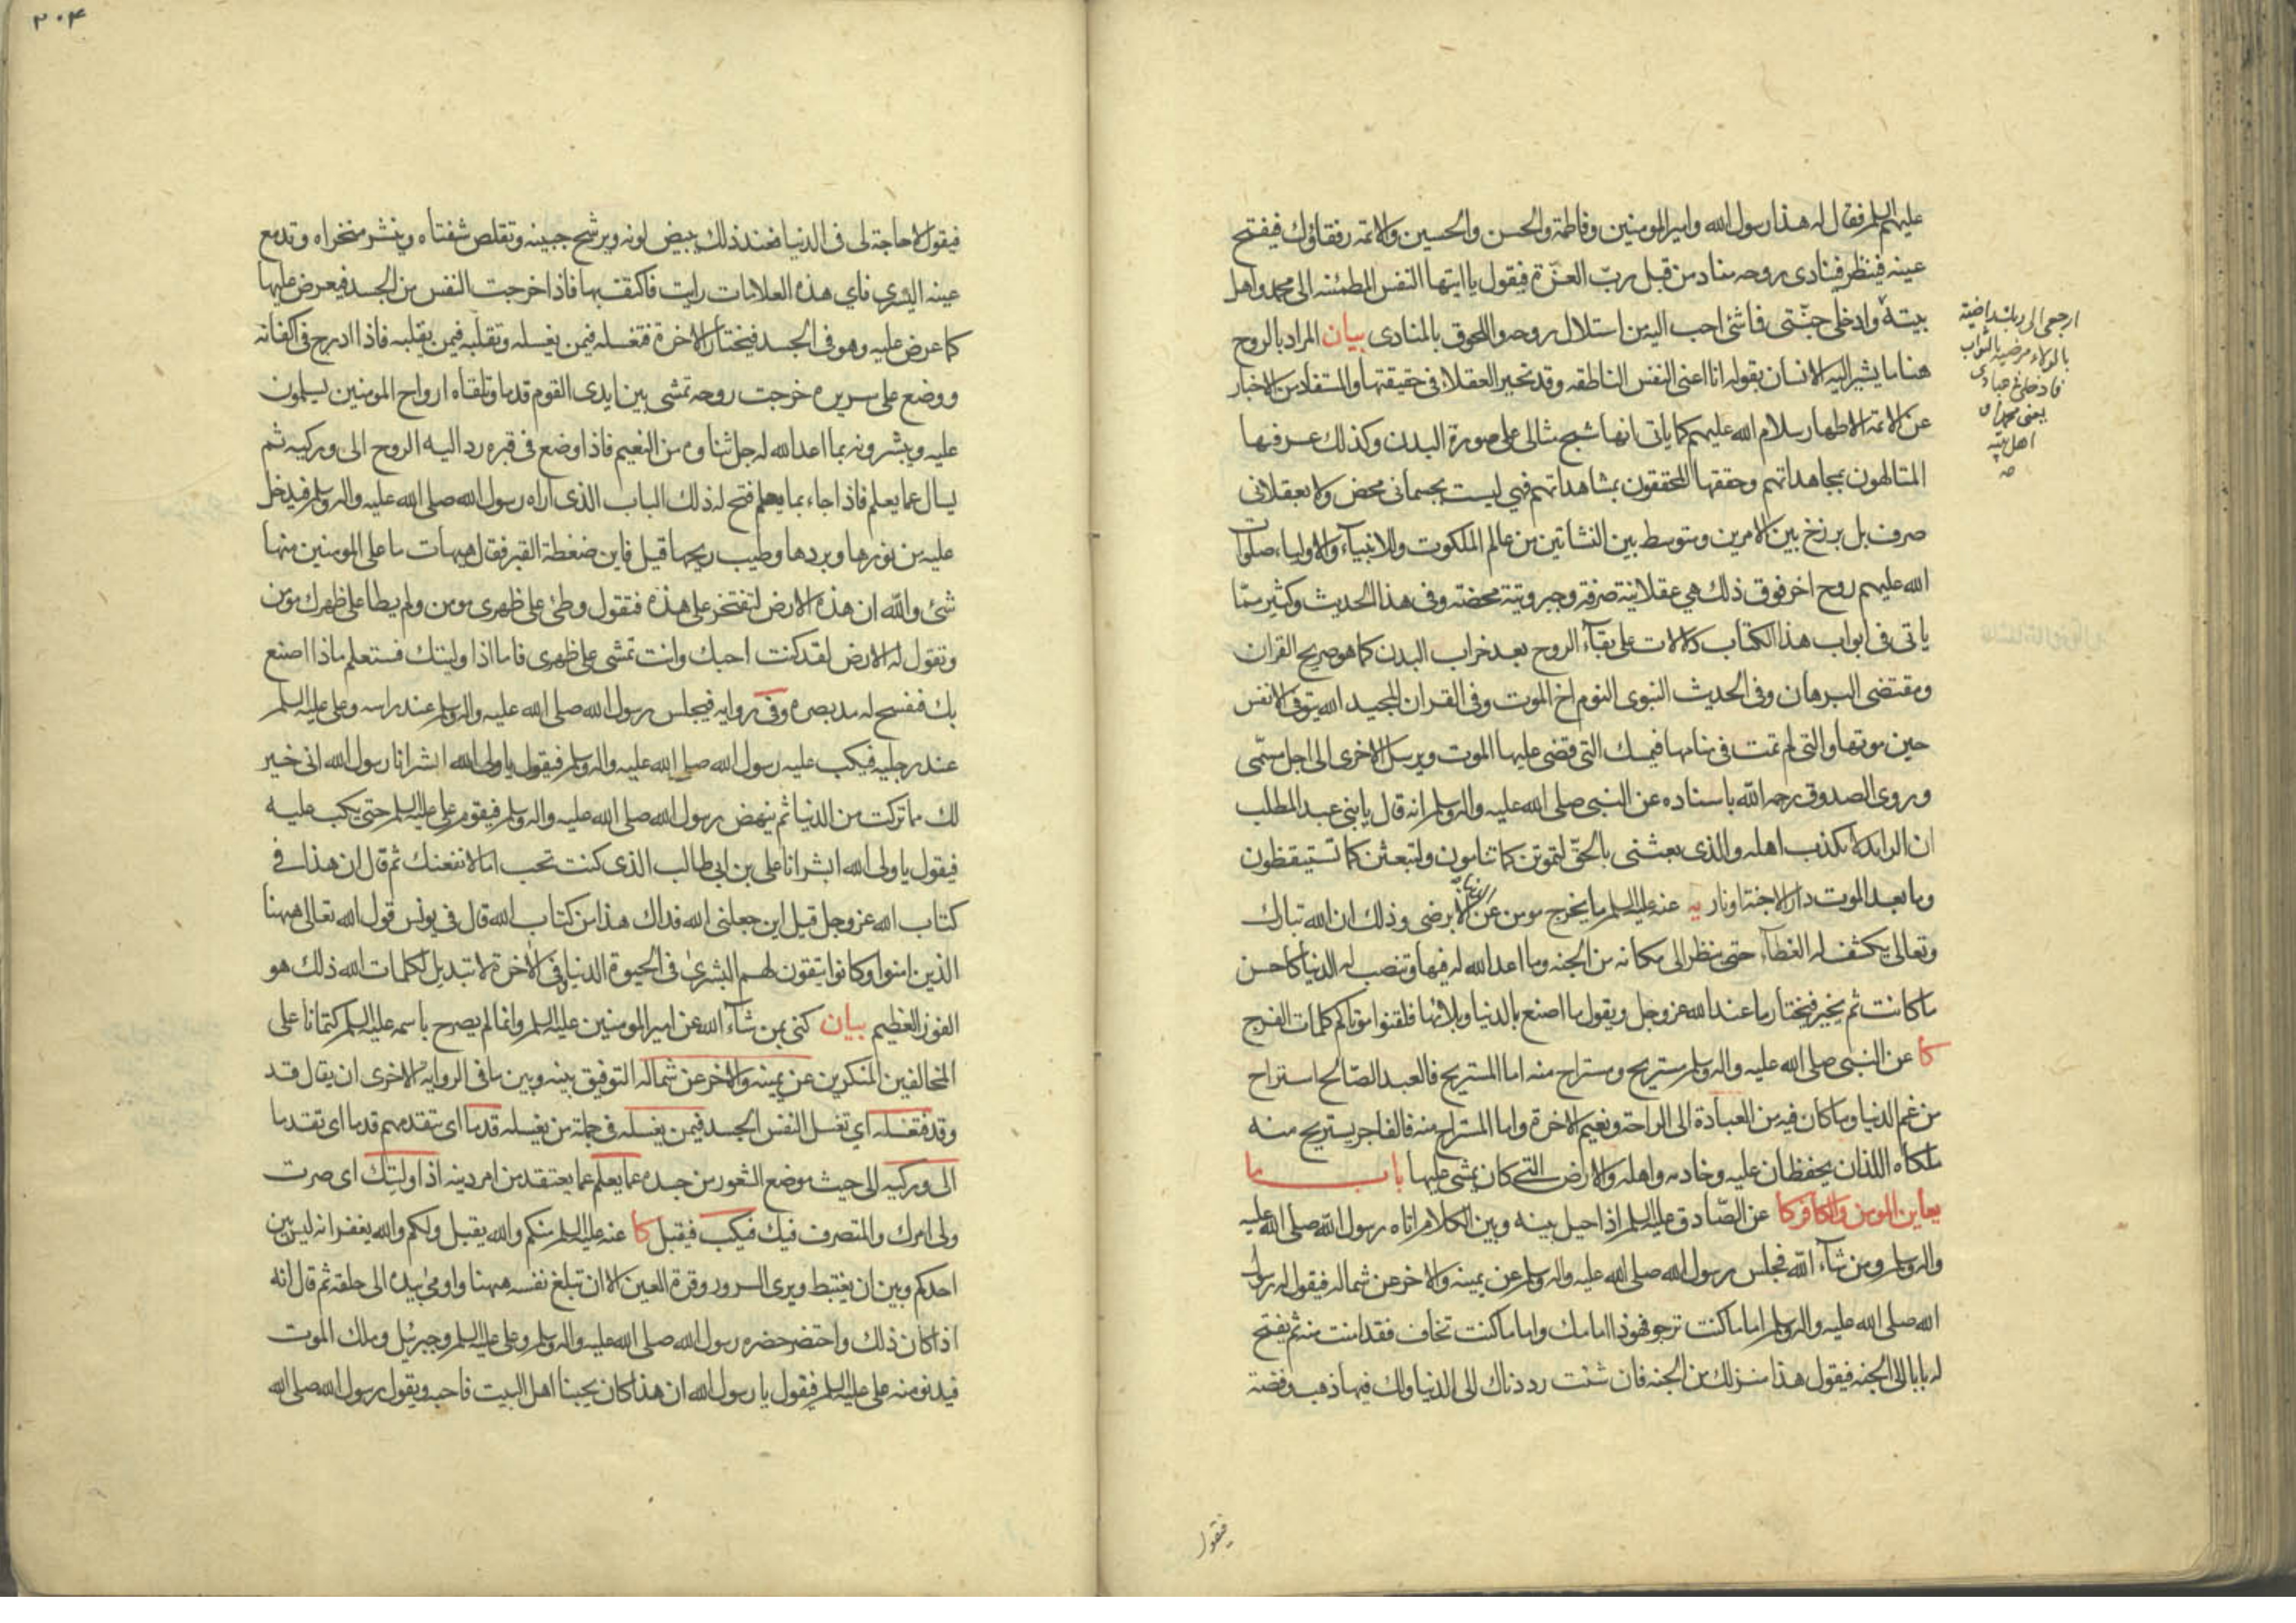 عليهم السلم فقال له هذا رسول الله وامير المومنين وفاطمة والحسن والحسين والائمة رفقاؤك فيفتح
عينه فينظر فينادى روحه مناد من قبل ربّ العزّة فيقول يا ايتها النفس المطمئنه الى محمد واهل
بيته وادخلى جنّتى فما شئ احب اليه من استلال روحه واللحوق بالمنادى بيان المراد بالروح
هنا ما يشير اليه الانسان بقوله انا اعنى النفس الناطقه وقد تحير العقلاء فى حقيقتها والمستفاد من الاخبار
عن الائمة الاطهار سلام الله عليهم كما ياتى انها شبح مثالى على صورة البدن وكذلك عرفها
المتالهون بمجاهداتهم وحققها المحققون بمشاهداتهم فهى ليست بجسمانى محض ولا بعقلانى
صرف بل برزخ بين الامرين ومتوسط بين النشاتين من عالم الملكوت وللانبيآء والاولياء صلوات
الله عليهم روح اخر فوق ذلك هي عقلانية صرفة وجبروتية محضة وفى هذا الحديث وكثير ممّا
ياتى فى ابواب هذا الكتاب دلالات على بقآء الروح بعد خراب البدن كما هو صريح القران
ومقتضى البرهان وفى الحديث النبوى النوم اخ الموت وفى القران المجيد الله يتوفى الانفس
حين موتها والتى لم تمت فى منامها فيمسك التى قضى عليها الموت ويرسل الاخرى الى اجل مسمّى
وروى الصدوق رحمه الله باسناده عن النبى صلى الله عليه واله وسلم انه قال يا بنى عبد المطلب
ان الرايد لا يكذب اهله والذى بعثنى بالحقّ لتموتن كما تنامون ولتبعثن كما تستيقظون
وما بعد الموت دار الا جنة او نار يه عنه عليه السلم ما يخرج مومن عن الدنيا الا برضى وذلك ان الله تبارك
وتعالى يكشف له الغطآء حتى ينظر الى مكانه من الجنه وما اعد الله له فيها وتنصب له الدنيا كاحسن
ما كانت ثم يخير فيختار ما عند الله عز وجل ويقول ما اصنع بالدنيا وبلائها فلقنوا موتاكم كلمات الفرج
كا عن النبى صلى الله عليه واله وسلم مستريح ومستراح منه اما المستريح فالعبد الصّالح استراح
من غم الدنيا وما كان فيه من العبادة الى الراحة ونعيم الاخرة واما المستراح منه فالفاجر يستريح منه
ملكاه اللذان يحفظان عليه وخادمه واهله والارض التى كان يمشى عليها باب ما
يعاين المومن والكافر كا عن الصّادق عليه السلم اذا حيل بينه وبين الكلام اتاه رسول الله صلى الله عليه
واله وسلم ومن شآء الله فجلس رسول الله صلى الله عليه واله وسلم عن يمينه والاخر عن شماله فيقول له رسول
الله صلى الله عليه واله وسلم اما ما كنت ترجو فهوذا امامك واما ما كنت تخاف فقد امنت منه ثم يفتح
له بابا الى الجنه فيقول هذا منزلك من الجنه فان شئت رددناك الى الدنيا ولك فيها ذهب وفضة
ارجعى الى ربك راضية
بالولاء مرضية بالثواب
فادخلى فى عبادى
يعنى محمدا و
اهل بيته
صح
فيقول
٣٠٤
فيقول لا حاجة لى فى الدنيا فعند ذلك يبيض لونه ويرشح جبينه وتقلص شفتاه وينشر منخراه وتدمع
عينه اليسرى فاي هذه العلامات رايت فاكتف بها فاذا خرجت النفس من الجسد فيعرض عليها
كما عرض عليه وهو فى الجسد فيختار الاخرة فتغسله فيمن يغسله وتقلبه فيمن يقلبه فاذا ادرج فى اكفانه
ووضع على سريره خرجت روحه تمشى بين ايدى القوم قدما وتلقاه ارواح المومنين يسلمون
عليه ويبشرونه بما اعد الله له جل ثناوه من النعيم فاذا وضع فى قبره رد اليه الروح الى وركيه ثم
يسال عما يعلم فاذا جاء بما يعلم فتح له ذلك الباب الذى اراه رسول الله صلى الله عليه واله وسلم فيدخل
عليه من نورها وبردها وطيب ريحها قيل فاين ضغطة القبر فقال هيهات ما على المومنين منها
شئ والله ان هذه الارض لتفتخر على هذه فتقول وطئ على ظهرى مومن ولم يطا على ظهرك مومن
وتقول له الارض لقد كنت احبك وانت تمشى على ظهرى فاما اذا وليتك فستعلم ماذا اصنع
بك فيفسح له مد بصره وفى روايه فيجلس رسول الله صلى الله عليه واله وسلم عند راسه وعلى عليه السلم
عند رجليه فيكب عليه رسول الله صلى الله عليه واله وسلم فيقول يا ولى الله ابشر انا رسول الله انى خير
لك ما تركت من الدنيا ثم ينهض رسول الله صلى الله عليه واله وسلم فيقوم على عليه السلم حتى يكب عليه
فيقول يا ولى الله ابشر انا على بن ابى طالب الذى كنت تحب اما لانفعنك ثم قال ان هذا فى
كتاب الله عز وجل قيل اين جعلنى الله فداك هذا من كتاب الله قال فى يونس قول الله تعالى ههنا
الذين امنوا وكانوا يتقون لهم البشرىٰ فى الحيوة الدنيا وفى الاخرة لا تبديل لكلمات الله ذلك هو
الفوز العظيم بيان كنى بمن شآء الله عن امير المومنين عليه السلم وانما لم يصرح باسمه عليه السلم كتمانا على
المخالفين المنكرين عن يمينه والاخر عن شماله التوفيق بينه وبين ما فى الروايه الاخرى ان يقال قد
وقد فتغسله اي تغسل النفس الجسد فيمن يغسله فى جملة من يغسله قدما اى يتقدمهم قدما اى تقدما
الى وركيه الى حيث موضع الشعور من جسده عما يعلم عما يعتقد من امر دينه اذا وليتك اى صرت
ولى امرك والمتصرف فيك فيكب فيقبل كا عنه عليه السلم منكم والله يقبل ولكم والله يغفر انه ليس بين
احدكم وبين ان يغتبط ويرى السرور وقرة العين الا ان تبلغ نفسه ههنا واومئ بيده الى حلقه ثم قال انه
اذا كان ذلك واحتضر حضره رسول الله صلى الله عليه واله وسلم وعلى عليه السلم وجبرئيل وملك الموت
فيدنو منه على عليه السلم فيقول يا رسول الله ان هذا كان يحبنا اهل البيت فاحبه ويقول رسول الله صلى الله